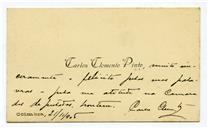 Carlos Clemente Pinto, muito sin-
ceramente o felicita pelas suas pala-
vras e pela sua atitude na Camara
dos deputados, hontem.
Coimbra, 21/11/06